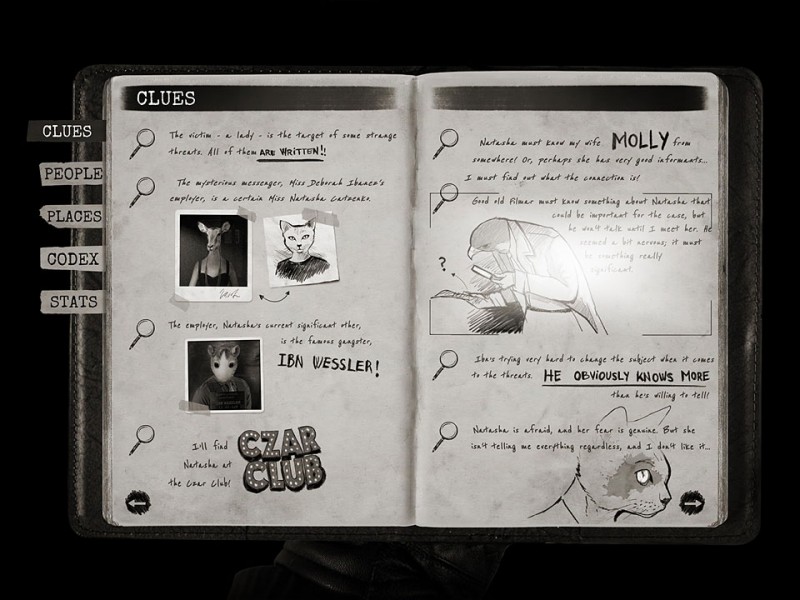 CLUES
CLUES
PEOPLE
PLACES
CODEX
STATS
The victim - a lady - is the target of some strange
threats. All of them ARE WRITTEN!!
The mysterious messenger, Miss Deborah Ibanen's
employer, is a certain Miss Natasha Catzenko.
The employer, Natasha's current significant other,
is the famous gangster,
IBN WESSLER!
I'll find
Natasha at
the Czar Club!
CZAR
CLUB
Natasha must know my wife MOLLY from
somewhere! Or, perhaps she has very good informants...
I must find out what the connection is!
Good old Filmar must know something about Natasha that
could be important for the case, but
he won't talk until I meet her. He
seemed a bit nervous; it must
be something really
significant
?
Ibn's trying very hard to change the subject when it comes
to the threats. HE OBVIOUSLY KNOWS MORE
than he's willing to tell!
Natasha is afraid, and her fear is genuine. But she
isn't telling me everything regardless, and I don't like it...